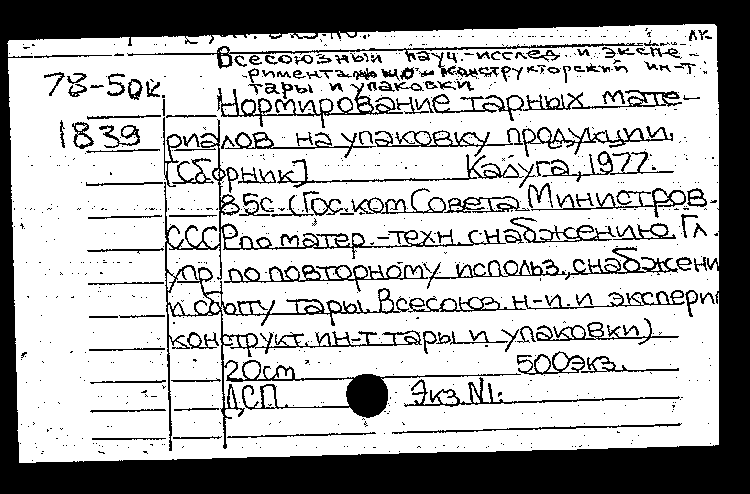 ЛК
Всесоюзный науч.-исслед. и экспе-
риментально-конструкторский ин-т
тары и упаковки
78-50к
Нормирование тарных мате-
1839 риалов на упаковку продукции.
[Сборник] Калуга, 1977.
85с. (Гос. ком Совета Министров
СССР по матер.-техн. снабжению. Гл.
упр. по повторному использ., снабжени
и сбыту тары. Всесоюз. н-и. и экспери
конструкт. ин-т тары и упаковки)
20см 500экз.
ДСП. Экз. N1: